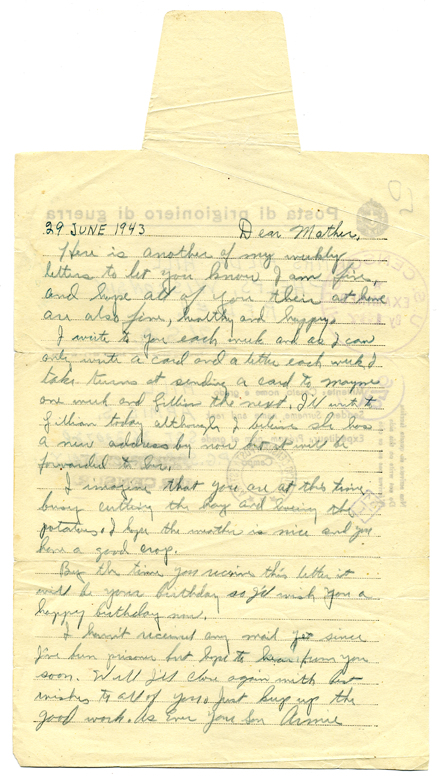 29 JUNE 1943 Dear Mother,
Here is another of my weekly
letters to let you know I am fine,
and hope all of you their at home
are also fine, healthy and happy.
I write to you each week and as I can
only write a card and a letter each week I
take turns at sending a card to
one week and Lillian the next. I'll write to
Lillian today although I believe she has
a new address by now but it will be
forwarded to her.
I imagine that you are at this time
busy cutting the hay and hoeing the
potatoes. I hope the weather is nice and you
have a good crop.
By the time you receive this letter it
will be your birthday so I'll wish you a
happy birthday now.
I haven't received any mail yet since
I've been prisoner but hope to hear from you
soon. Well I'll close again with best
wishes to all of you. Just keep up the
good work. As Ever Your Son
Posta di prigioniero di guerra